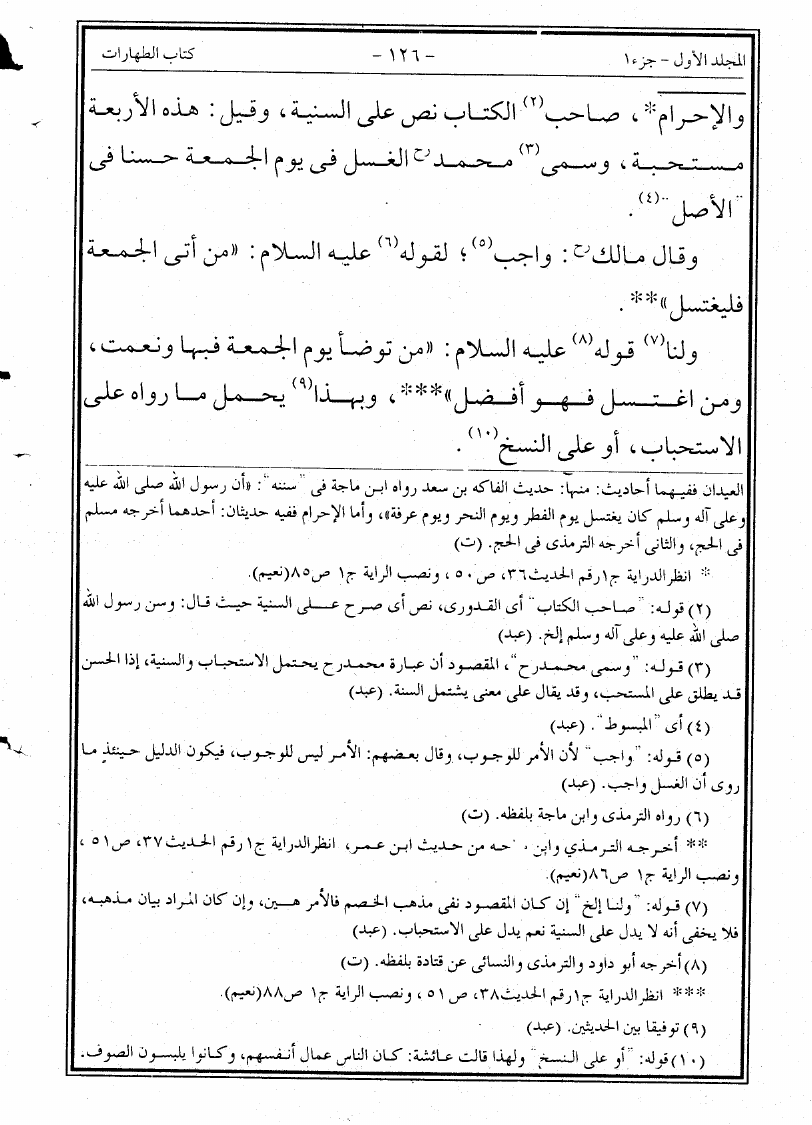 المجلد الأول – جزء١ - ١٢٦ - كتاب الطهارات
والإحرام*، صاحب(٢) الكتاب نص على السنية، وقيل: هذه الأربعة
مستحبة، وسمى(٣) محمدرح الغسل فى يوم الجمعة حسنا فى
"الأصل"(٤).
وقال مالكرح: واجب(٥)؛ لقوله(٦) عليه السلام: «من أتى الجمعة
فليغتسل»**.
ولنا(٧) قوله(٨) عليه السلام: «من توضأ يوم الجمعة فبها ونعمت،
ومن اغتسل فهو أفضل»***، وبهذا(٩) يحمل ما رواه على
الاستحباب، أو على النسخ(١٠).
العيدان ففيهما أحاديث: منها: حديث الفاكه بن سعد رواه ابن ماجة فى "سننه": «أن رسول الله صلى الله عليه
وعلى آله وسلم كان يغتسل يوم الفطر ويوم النحر ويوم عرفة»، وأما الإحرام ففيه حديثان: أحدهما أخرجه مسلم
فى الحج، والثانى أخرجه الترمذى فى الحج. (ت)
* انظر الدراية ج١ رقم الحديث٣٦، ص٥٠، ونصب الراية ج١ ص٨٥(نعيم).
(٢) قوله: "صاحب الكتاب" أى القدورى، نص أى صرح على السنية حيث قال: وسن رسول الله
صلى الله عليه وعلى آله وسلم إلخ. (عبد)
(٣) قوله: "وسمى محمدرح"، المقصود أن عبارة محمدرح يحتمل الاستحباب والسنية، إذا الحسن
قد يطلق على المستحب، وقد يقال على معنى يشتمل السنة. (عبد)
(٤) أى "المبسوط". (عبد)
(٥) قوله: "واجب" لأن الأمر للوجوب، وقال بعضهم: الأمر ليس للوجوب، فيكون الدليل حينئذ ما
روى أن الغسل واجب. (عبد)
(٦) رواه الترمذى وابن ماجة بلفظه. (ت)
** أخرجه الترمذي وابن حه من حديث ابن عمر، انظر الدراية ج١ رقم الحديث٣٧، ص٥١،
ونصب الراية ج١ ص٨٦(نعيم).
(٧) قوله: "ولنا إلخ" إن كان المقصود نفى مذهب الخصم فالأمر هين، وإن كان المراد بيان مذهبه،
فلا يخفى أنه لا يدل على السنية نعم يدل على الاستحباب. (عبد)
(٨) أخرجه أبو داود والترمذى والنسائى عن قتادة بلفظه. (ت)
*** انظر الدراية ج١ رقم الحديث٣٨، ص٥١، ونصب الراية ج١ ص٨٨(نعيم).
(٩) توفيقا بين الحديثين. (عبد)
(١٠) قوله: "أو على النسخ" ولهذا قالت عائشة: كان الناس عمال أنفسهم، وكانوا يلبسون الصوف.